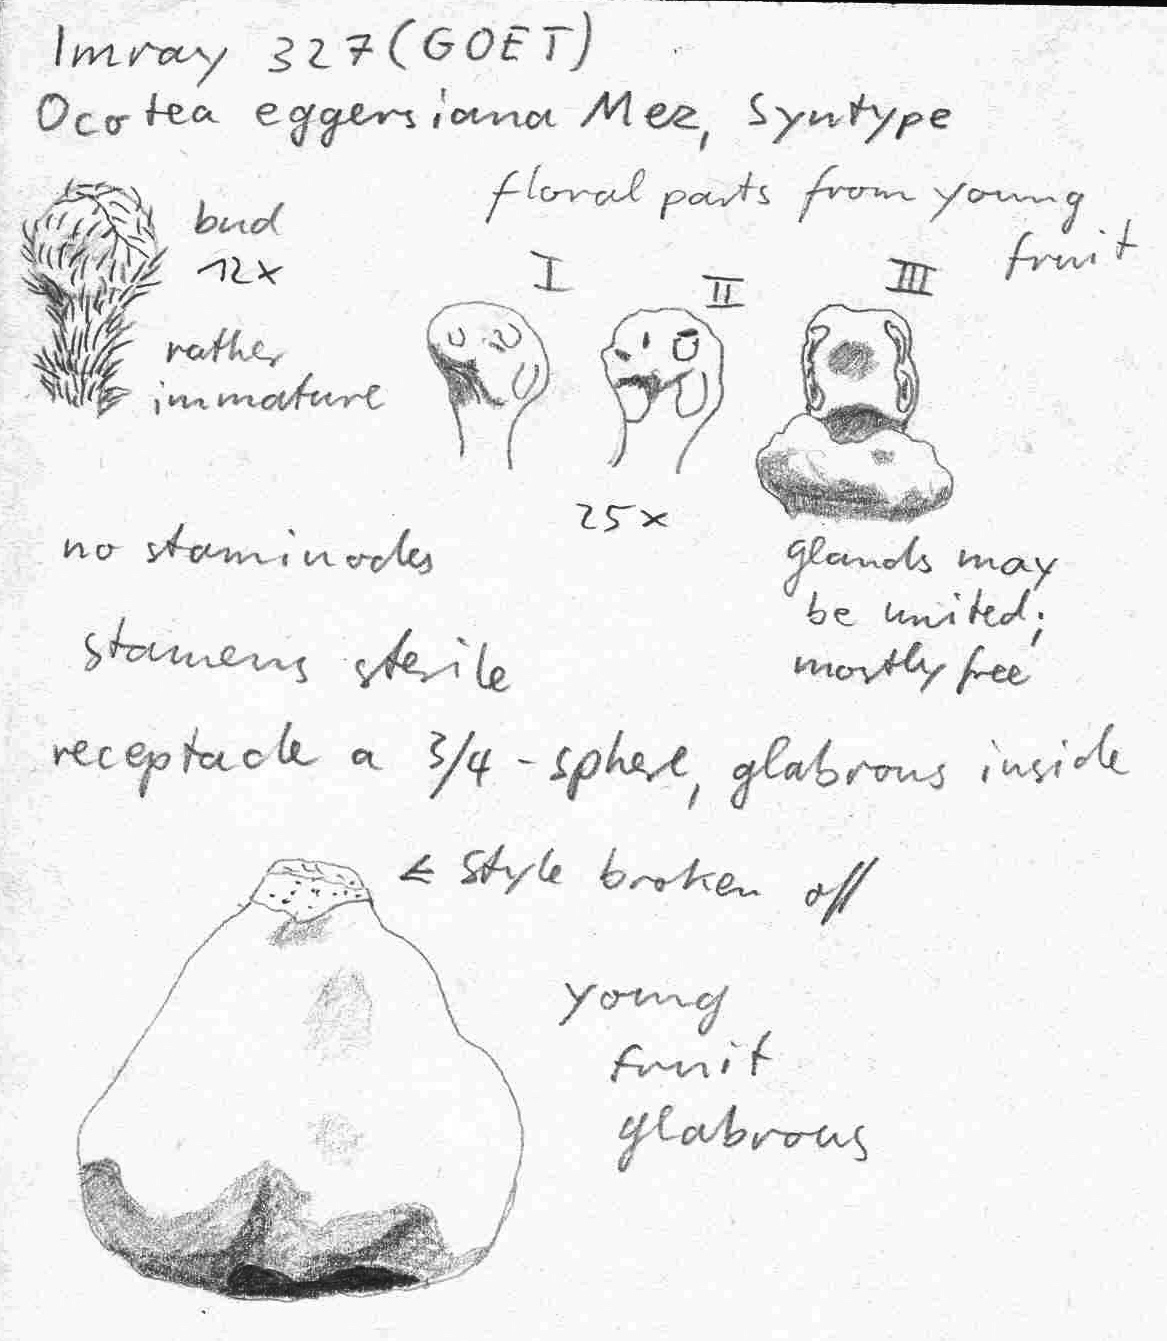 Imray 327 (GOET)
Ocotea eggersiana Mez, Syntype
floral parts from young
fruit
bud
12x
rather
immature
I
II
III
25x
no staminodes
glands may
be united;
mostly free
stamens sterile
receptacle a 3/4-sphere, glabrous inside
← style broken off
young
fruit
glabrous